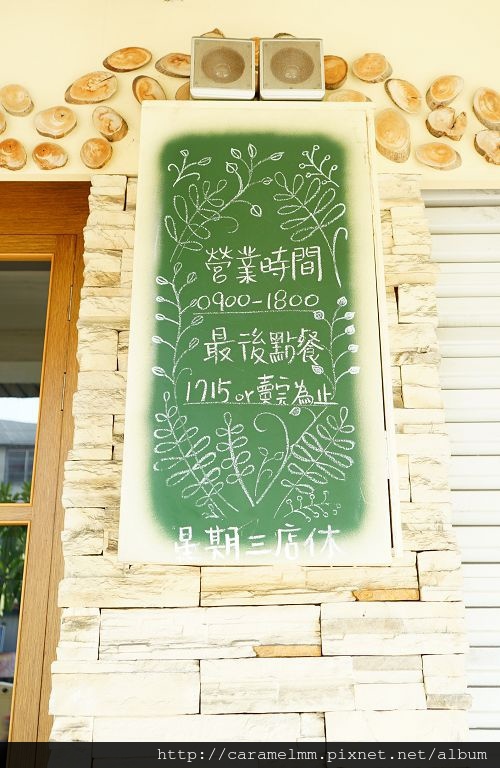 營業時間
0900-1800
最後點餐
1715 or 賣完為止
星期三店休
http://caramelmm.pixnet.net/album